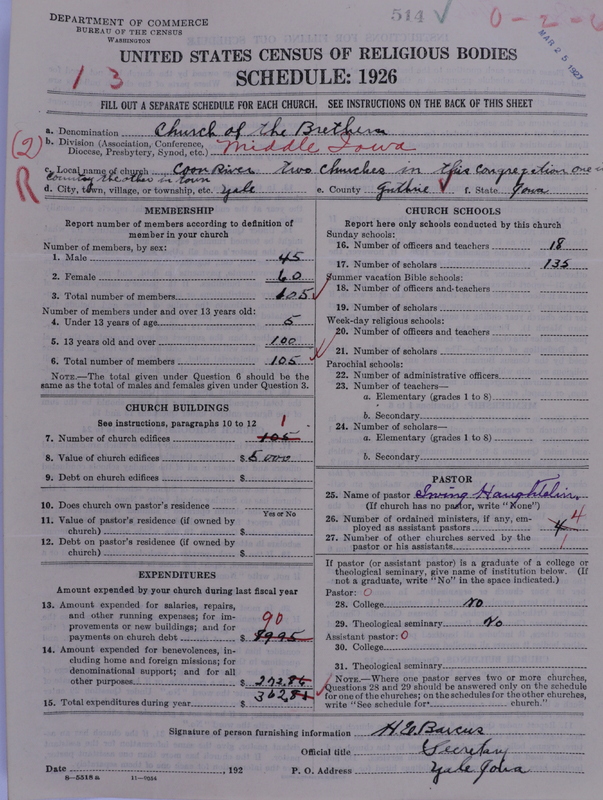 DEPARTMENT OF COMMERCE
BUREAU OF THE CENSUS
WASHINGTON
514 ✓
MAR 25 1927
UNITED STATES CENSUS OF RELIGIOUS BODIES
13
SCHEDULE: 1926
FILL OUT A SEPARATE SCHEDULE FOR EACH CHURCH. SEE INSTRUCTIONS ON THE BACK OF THIS SHEET
a. Denomination Church of the Brethern
(2) b. Division (Association, Conference, Diocese, Presbytery, Synod, etc.) Middle Iowa
R c. Local name of church Coon River two churches in this congregation one in
country the other in town
d. City, town, village, or township, etc. Yale e. County Guthrie ✓ f. State Iowa
MEMBERSHIP
Report number of members according to definition of
member in your church
Number of members, by sex:
1. Male 45
2. Female 60
3. Total number of members 105 ✓
Number of members under and over 13 years old:
4. Under 13 years of age 5
5. 13 years old and over 100
6. Total number of members 105 ✓
NOTE.—The total given under Question 6 should be the
same as the total of males and females given under Question 3.
CHURCH BUILDINGS
See instructions, paragraphs 10 to 12
7. Number of church edifices 105 1
8. Value of church edifices $ 5000
9. Debt on church edifices $
10. Does church own pastor's residence
Yes or No
11. Value of pastor's residence (if owned by
church) $
12. Debt on pastor's residence (if owned by
church) $
EXPENDITURES
Amount expended by your church during last fiscal year
13. Amount expended for salaries, repairs,
and other running expenses; for im-
provements or new buildings; and for
payments on church debt $ 90
14. Amount expended for benevolences, in-
cluding home and foreign missions; for
denominational support; and for all
other purposes $ 272.86
15. Total expenditures during year $ 362.81 ✓
CHURCH SCHOOLS
Report here only schools conducted by this church
Sunday schools:
16. Number of officers and teachers 18
17. Number of scholars 135
Summer vacation Bible schools:
18. Number of officers and teachers
19. Number of scholars
Week-day religious schools:
20. Number of officers and teachers
21. Number of scholars
Parochial schools:
22. Number of administrative officers
23. Number of teachers—
a. Elementary (grades 1 to 8)
b. Secondary
24. Number of scholars—
a. Elementary (grades 1 to 8)
b. Secondary
PASTOR
25. Name of pastor Irving Haughtelin
(If church has no pastor, write "None")
26. Number of ordained ministers, if any, em-
ployed as assistant pastors 4 4
27. Number of other churches served by the
pastor or his assistants 1
If pastor (or assistant pastor) is a graduate of a college or
theological seminary, give name of institution below. (If
not a graduate, write "No" in the space indicated.)
Pastor: 0
28. College No
29. Theological seminary No
Assistant pastor: 0
30. College
31. Theological seminary
NOTE.—Where one pastor serves two or more churches,
Questions 28 and 29 should be answered only on the schedule
for one of the churches; on the schedules for the other churches,
write "See schedule for church."
Signature of person furnishing information H. E. Barcus
Official title Secretary
Date , 192 P. O. Address Yale Iowa
8—5518a 11—9054